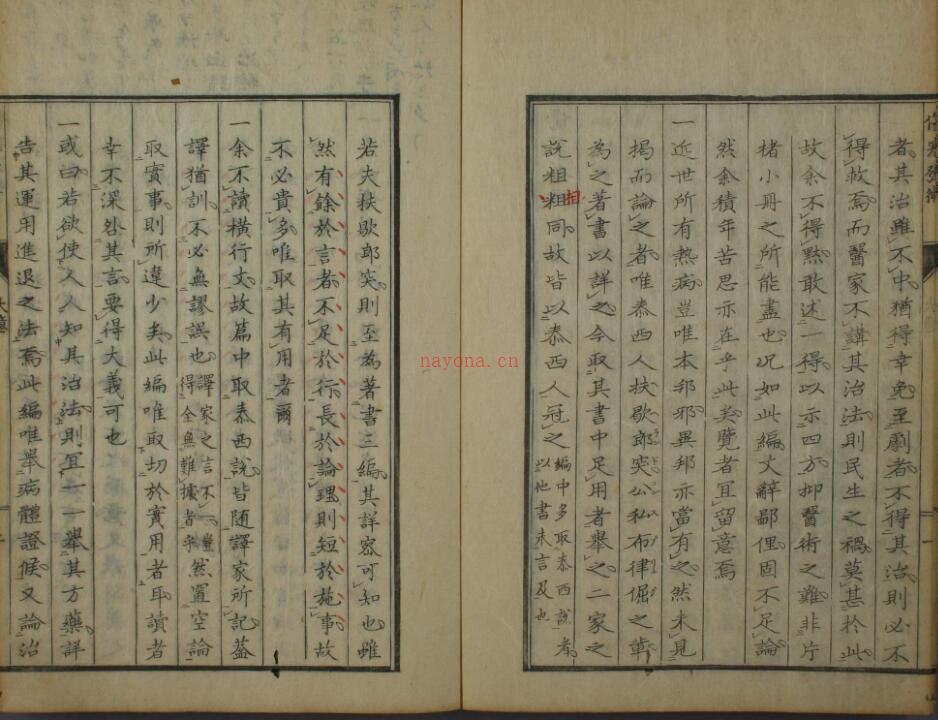 者其治雖不中猶得幸免至劇者不得其治則必不
得救焉而醫家不講其治法則民生之禍莫甚於此
故余不得黙敢述一得以示四方抑醫術之難非片
楮小冊之所能盡也况如此編文辭鄙俚固不足論
然余積年苦思亦在乎此矣覽者宜留意焉
一近世所有熱病豈唯本邦邪異邦亦當有之然未見
揭而論之者唯泰西人扶歇郎突公私布律倔之輩
為之著書以詳之今取其書中足用者舉之二家之
說粗粗同故皆以泰西人冠之編中多取泰西說者
以他書未言及也
相
若夫扶歇郎突則至為著書三編其詳密可知也雖
然有餘於言者不足於行長於論理則短於施事故
不必貴多唯取其有用者爾
一余不讀橫行文故篇中取泰西說皆隨譯家所記蓋
譯猶訓不必無謬誤也譯家之言不一豈
得全無難據者乎然置空論
取實事則所違少矣此編唯取切於實用者耳讀者
幸不深咎其言要得大義可也
一或曰若欲使人人知其治法則宜一一舉其方藥詳
告其運用進退之法焉此編唯舉病體證候又論治
nayona.cn